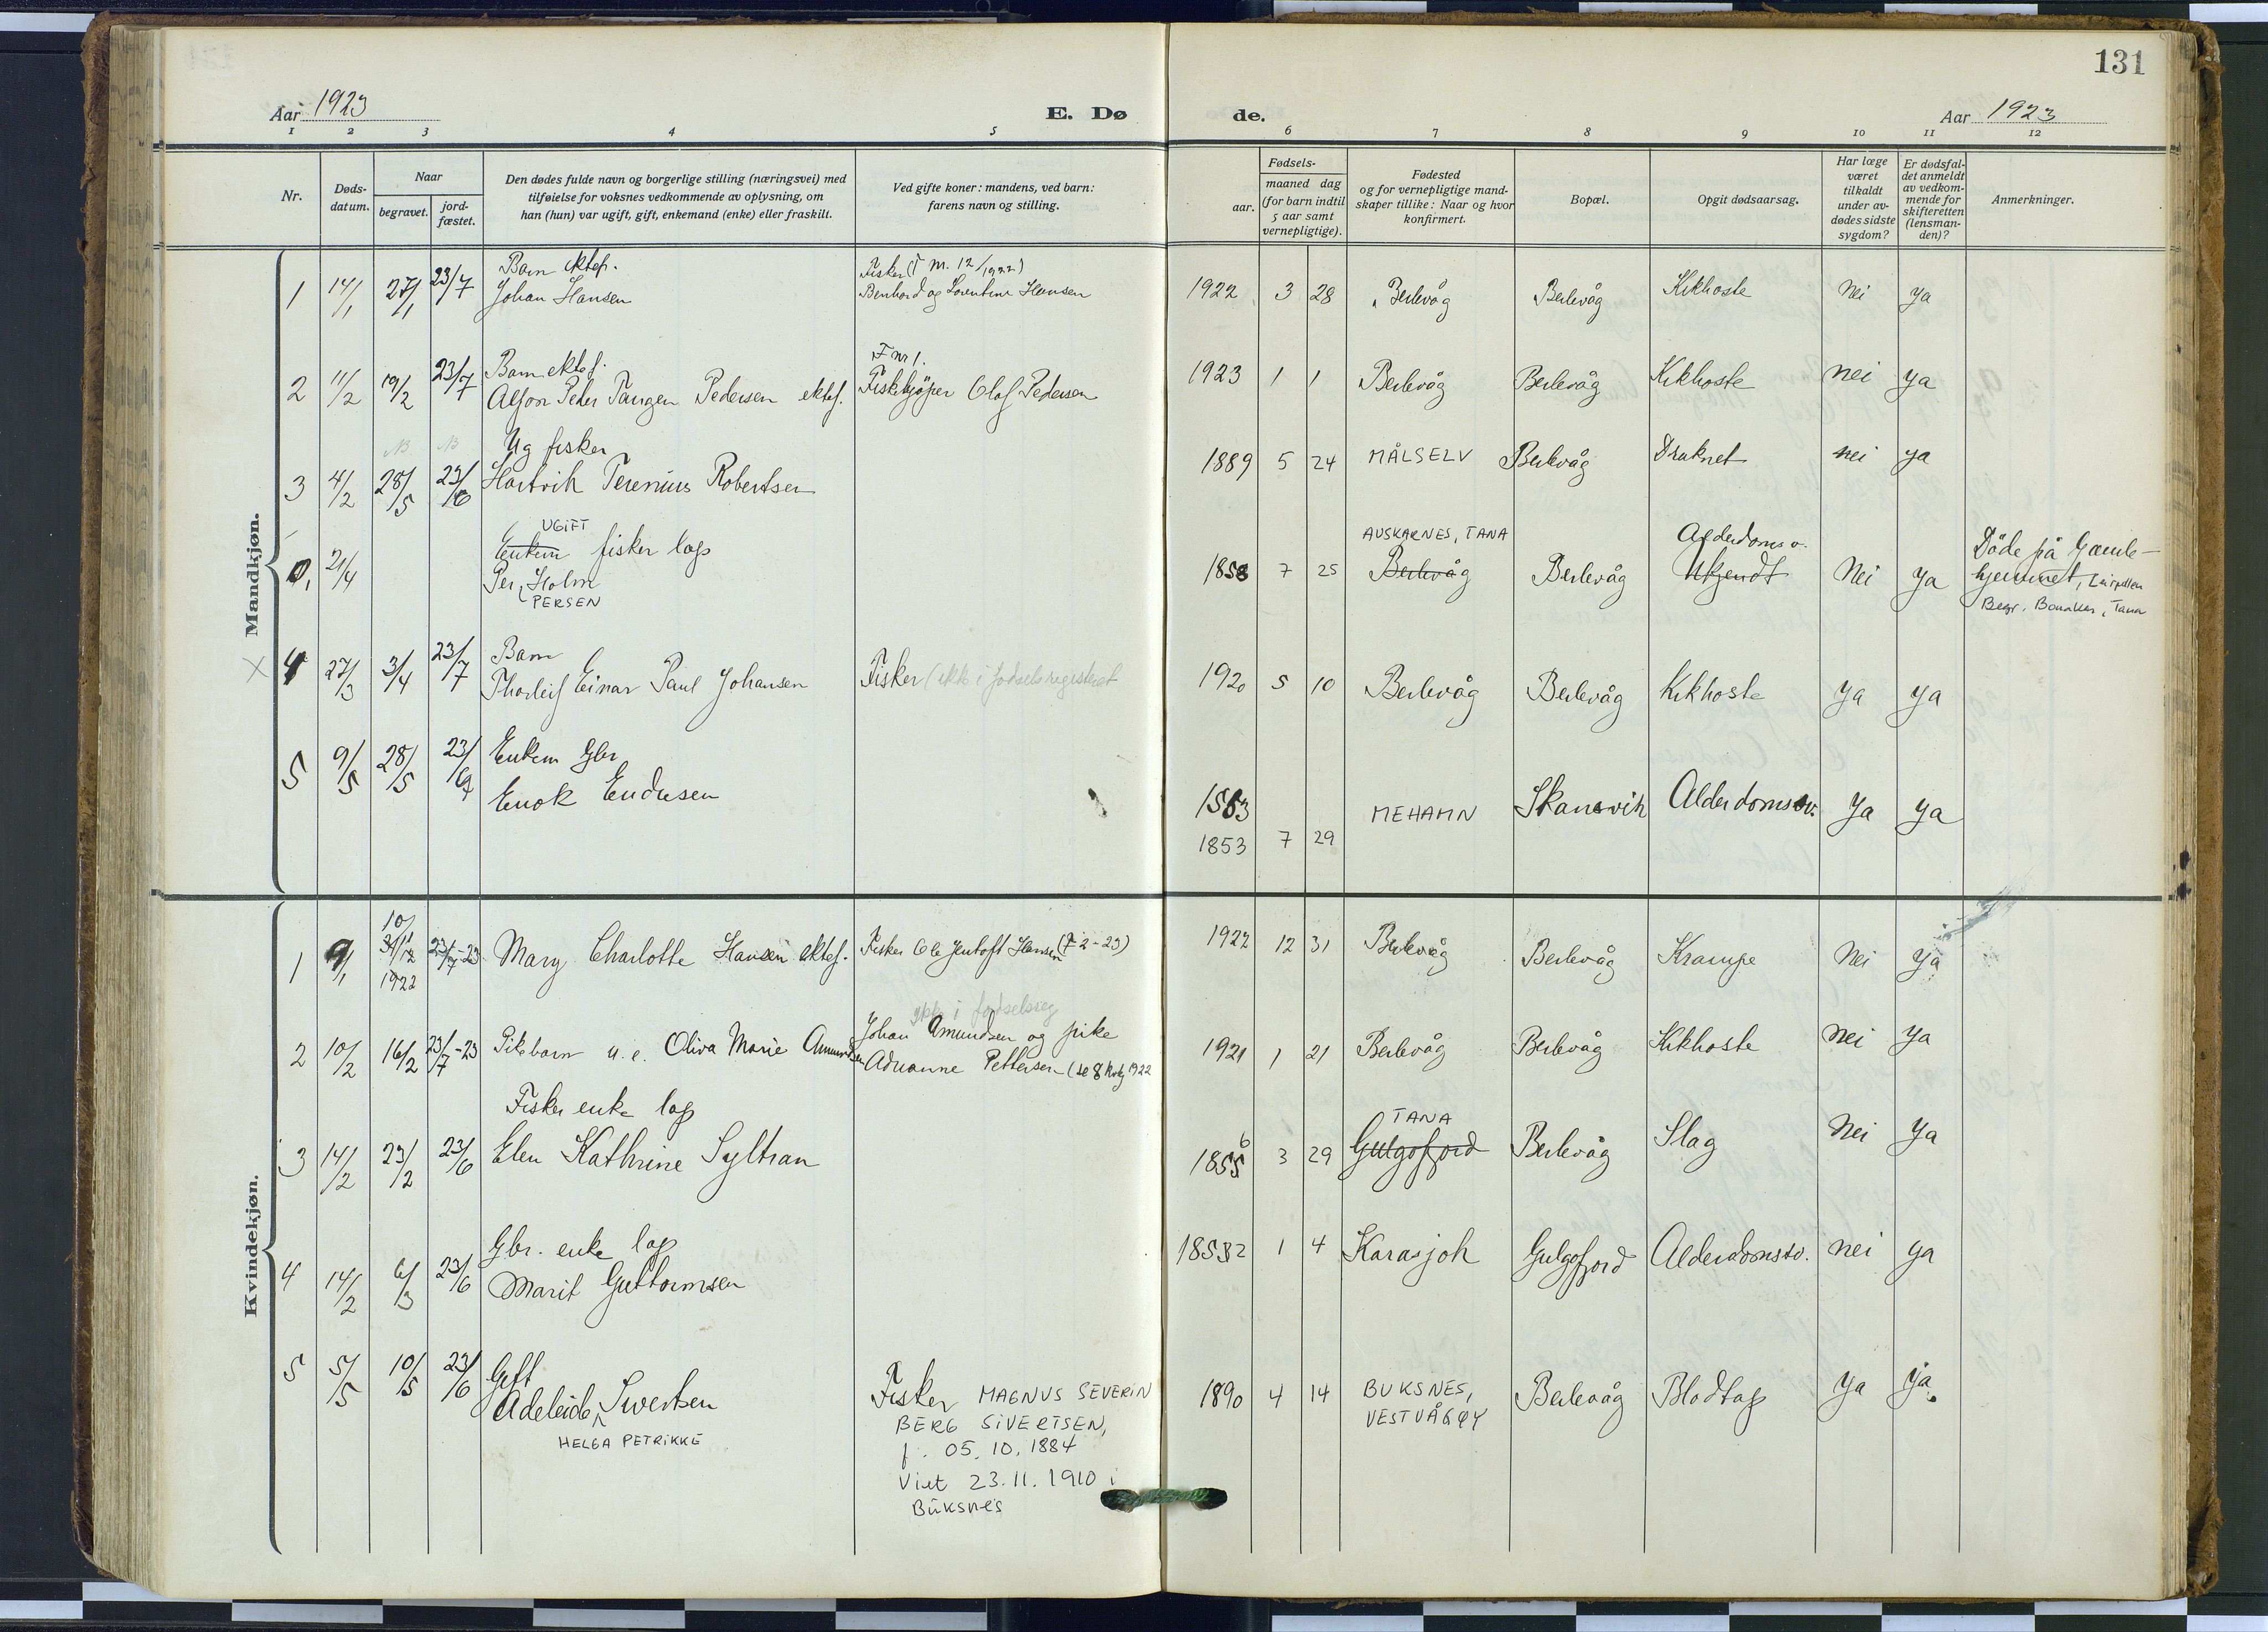 131
Aar 1923
E. Dø
de.
Aar 1923
1 2 3 4 5 6 7 8 9 10 11 12
Nr.
Døds-
datum.
Naar
begravet.
jord-
fæstet.
Den dødes fulde navn og borgerlige stilling (næringsvei) med
tilføielse for voksnes vedkommende av oplysning, om
han (hun) var ugift, gift, enkemand (enke) eller fraskilt.
Ved gifte koner: mandens, ved barn:
farens navn og stilling.
Fødsels-
aar.
maaned dag
(for barn indtil
5 aar samt
vernepligtige).
Fødested
og for vernepligtige mand-
skaper tillike: Naar og hvor
konfirmert.
Bopæl.
Opgit dødsaarsag.
Har læge
været
tilkaldt
under av-
dødes sidste
sygdom?
Er dødsfal-
det anmeldt
av vedkom-
mende for
skifteretten
(lensman-
den)?
Anmerkninger.
Mandkjøn.
Barn ektef. Fisker (F nr. 12/1922)
1 14/1 27/1 23/7 Johan Hansen Benhard og Laventine Hansen 1922 3 28 Berlevåg Berlevåg Kikhoste Nei ya
Barn ektef. F nr 1.
2 11/2 19/2 23/7 Alfon Peder Tangen Pedersen ektef. Fiskekjöper Olaf Pedersen 1923 1 1 Berlevåg Berlevåg Kikhoste nei ya
Ug fisker
3 4/2 28/5 23/6 Hartvik Terenius Robertsen 1889 5 24 MÅLSELV Berlevåg Druknet nei ya
UGIFT AUSKARNES, TANA Alderdoms v.
0, 21/4 Enkem fisker lap 1858 7 25 Berlevåg Berlevåg Ukjendt Nei ya Döde på Gamle-
Per Holm hjemmet,
PERSEN Begr. Bonakas, Tana
X 4 27/3 3/4 23/7 Barn
Thorleif Einar Paul Johansen Fisker (ikke i fødselsregisteret 1920 5 10 Berlevåg Berlevåg Kikhoste ya ya
5 9/5 28/5 23/6 Enkem Gbr
Enok Endresen 1853 MEHAMN Skansvik Alderdomssv. Ja ya
1853 7 29
Kvindekjøn.
1 9/1 10/1 31/12 1922 23/7-23 Mary Charlotte Hansen ektef. Fisker Ole Jentoft Hansen (F 2-23) 1922 12 31 Berlevåg Berlevåg Krampe Nei ya
ikke i fødselsreg
2 10/2 16/2 23/7-23 Pikebarn u.e. Oliva Marie Amundsen Johan Amundsen og pike 1921 1 21 Berlevåg Berlevåg Kikhoste nei ya
Adrianne Pettersen (se 8 1922
Fisker enke lap TANA
3 14/2 23/2 23/6 Elen Kathrine Syltran 1855 6 3 29 Gulgofjord Berlevåg Slag Nei Ja
Gbr. enke lap
4 14/2 6/3 23/6 Marit Guttormsen 1853 2 1 4 Karasjok Gulgofjord Alderdomssv. nei ya
5 5/5 10/5 23/6 Gift
Adeleide Sivertsen Fisker MAGNUS SEVERIN 1890 4 14 BUKSNES, Berlevaåg Blodtap Ya ja.
HELGA PETRIKKE BERG SIVERTSEN, VESTVÅGØY
f. 05.10.1884
Viet 23.11.1910 i
Buksnes